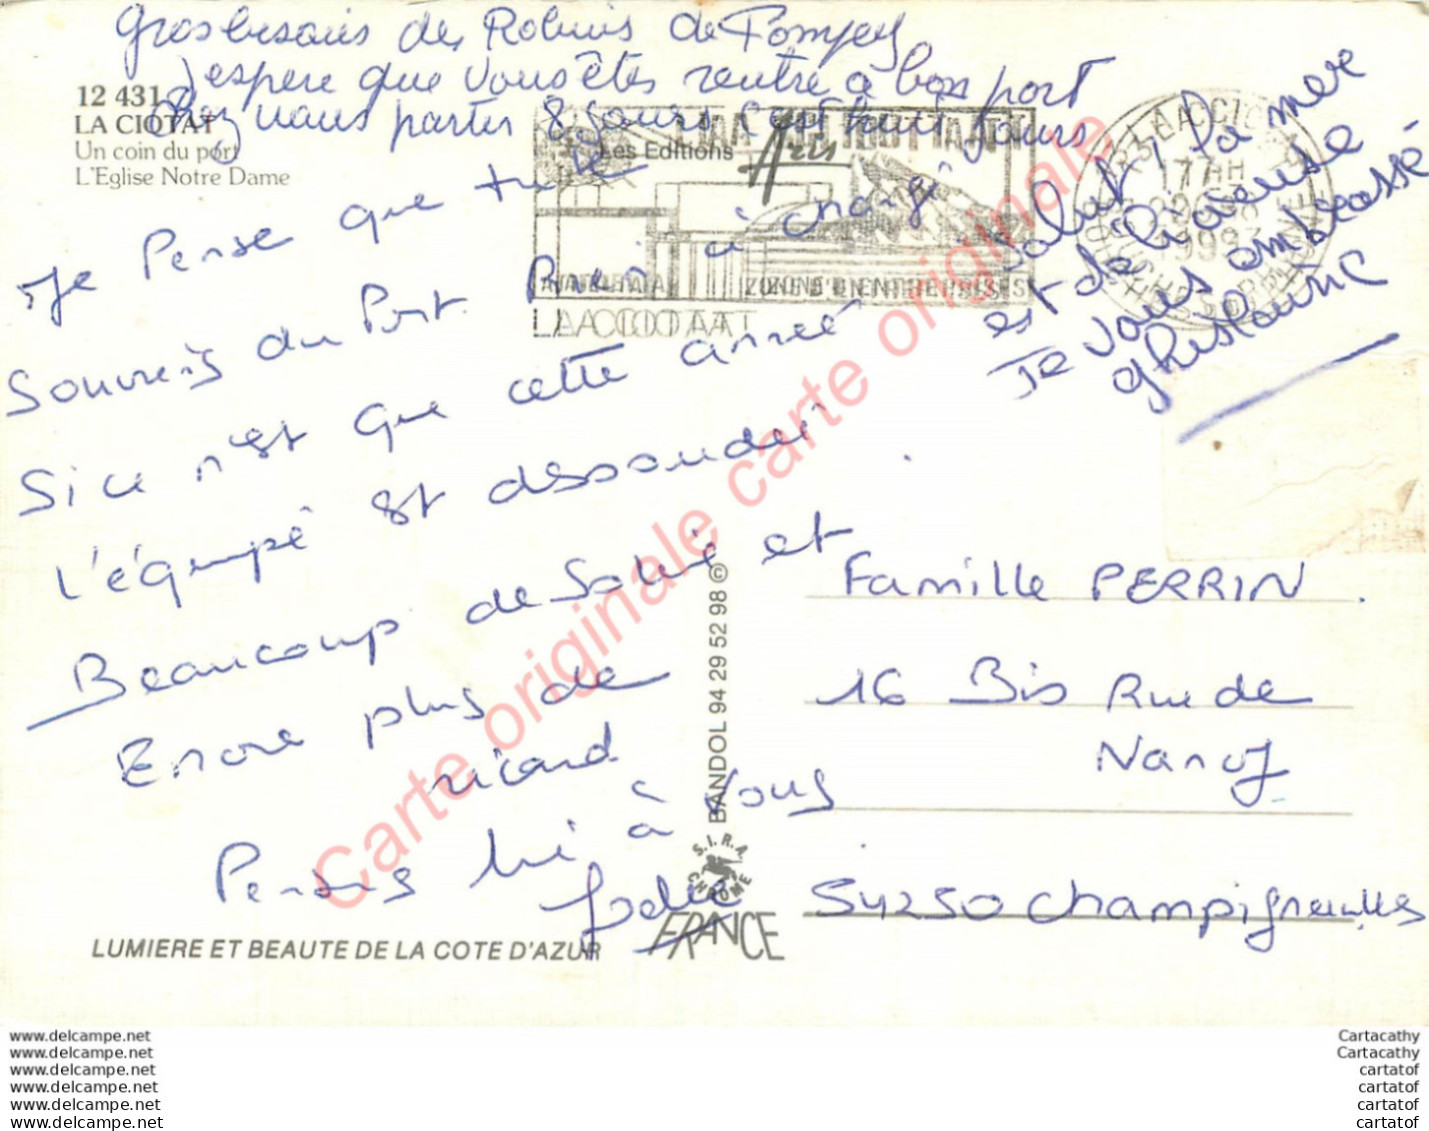 Gros besoins des Robins de Pompey
J'espere que vous êtes rentre a bon port
nous partis 8 jours c'est tout jours
12 431
LA CIOTAT
Un coin du port
L'Eglise Notre Dame
Les Editions Aris
ZONE D'ENTREPRISES
LA CIOTAT
LA CIOTAT
17 H
1993
BOUCHES DU RHONE
Je Pense que tu te
Souviens du Port. Rien à changé
Si ce n'est que cette année
l'équipe est dessoudé
Beaucoup de Soleil et
Encore plus de
ricard
Pensés à vous
Salut, la mer
est délicieuse
Je vous embrasse
Ghislaine
Famille PERRIN.
16 Bis Rue de
Nancy
54250 Champigneulles
BANDOL 94 29 52 98 ©
S.I.R.A.
CHROME
FRANCE
LUMIERE ET BEAUTE DE LA COTE D'AZUR
Carte originale carte originale
www.delcampe.net
www.delcampe.net
www.delcampe.net
www.delcampe.net
www.delcampe.net
www.delcampe.net
Cartacathy
Cartacathy
cartatof
cartatof
cartatof
cartatof